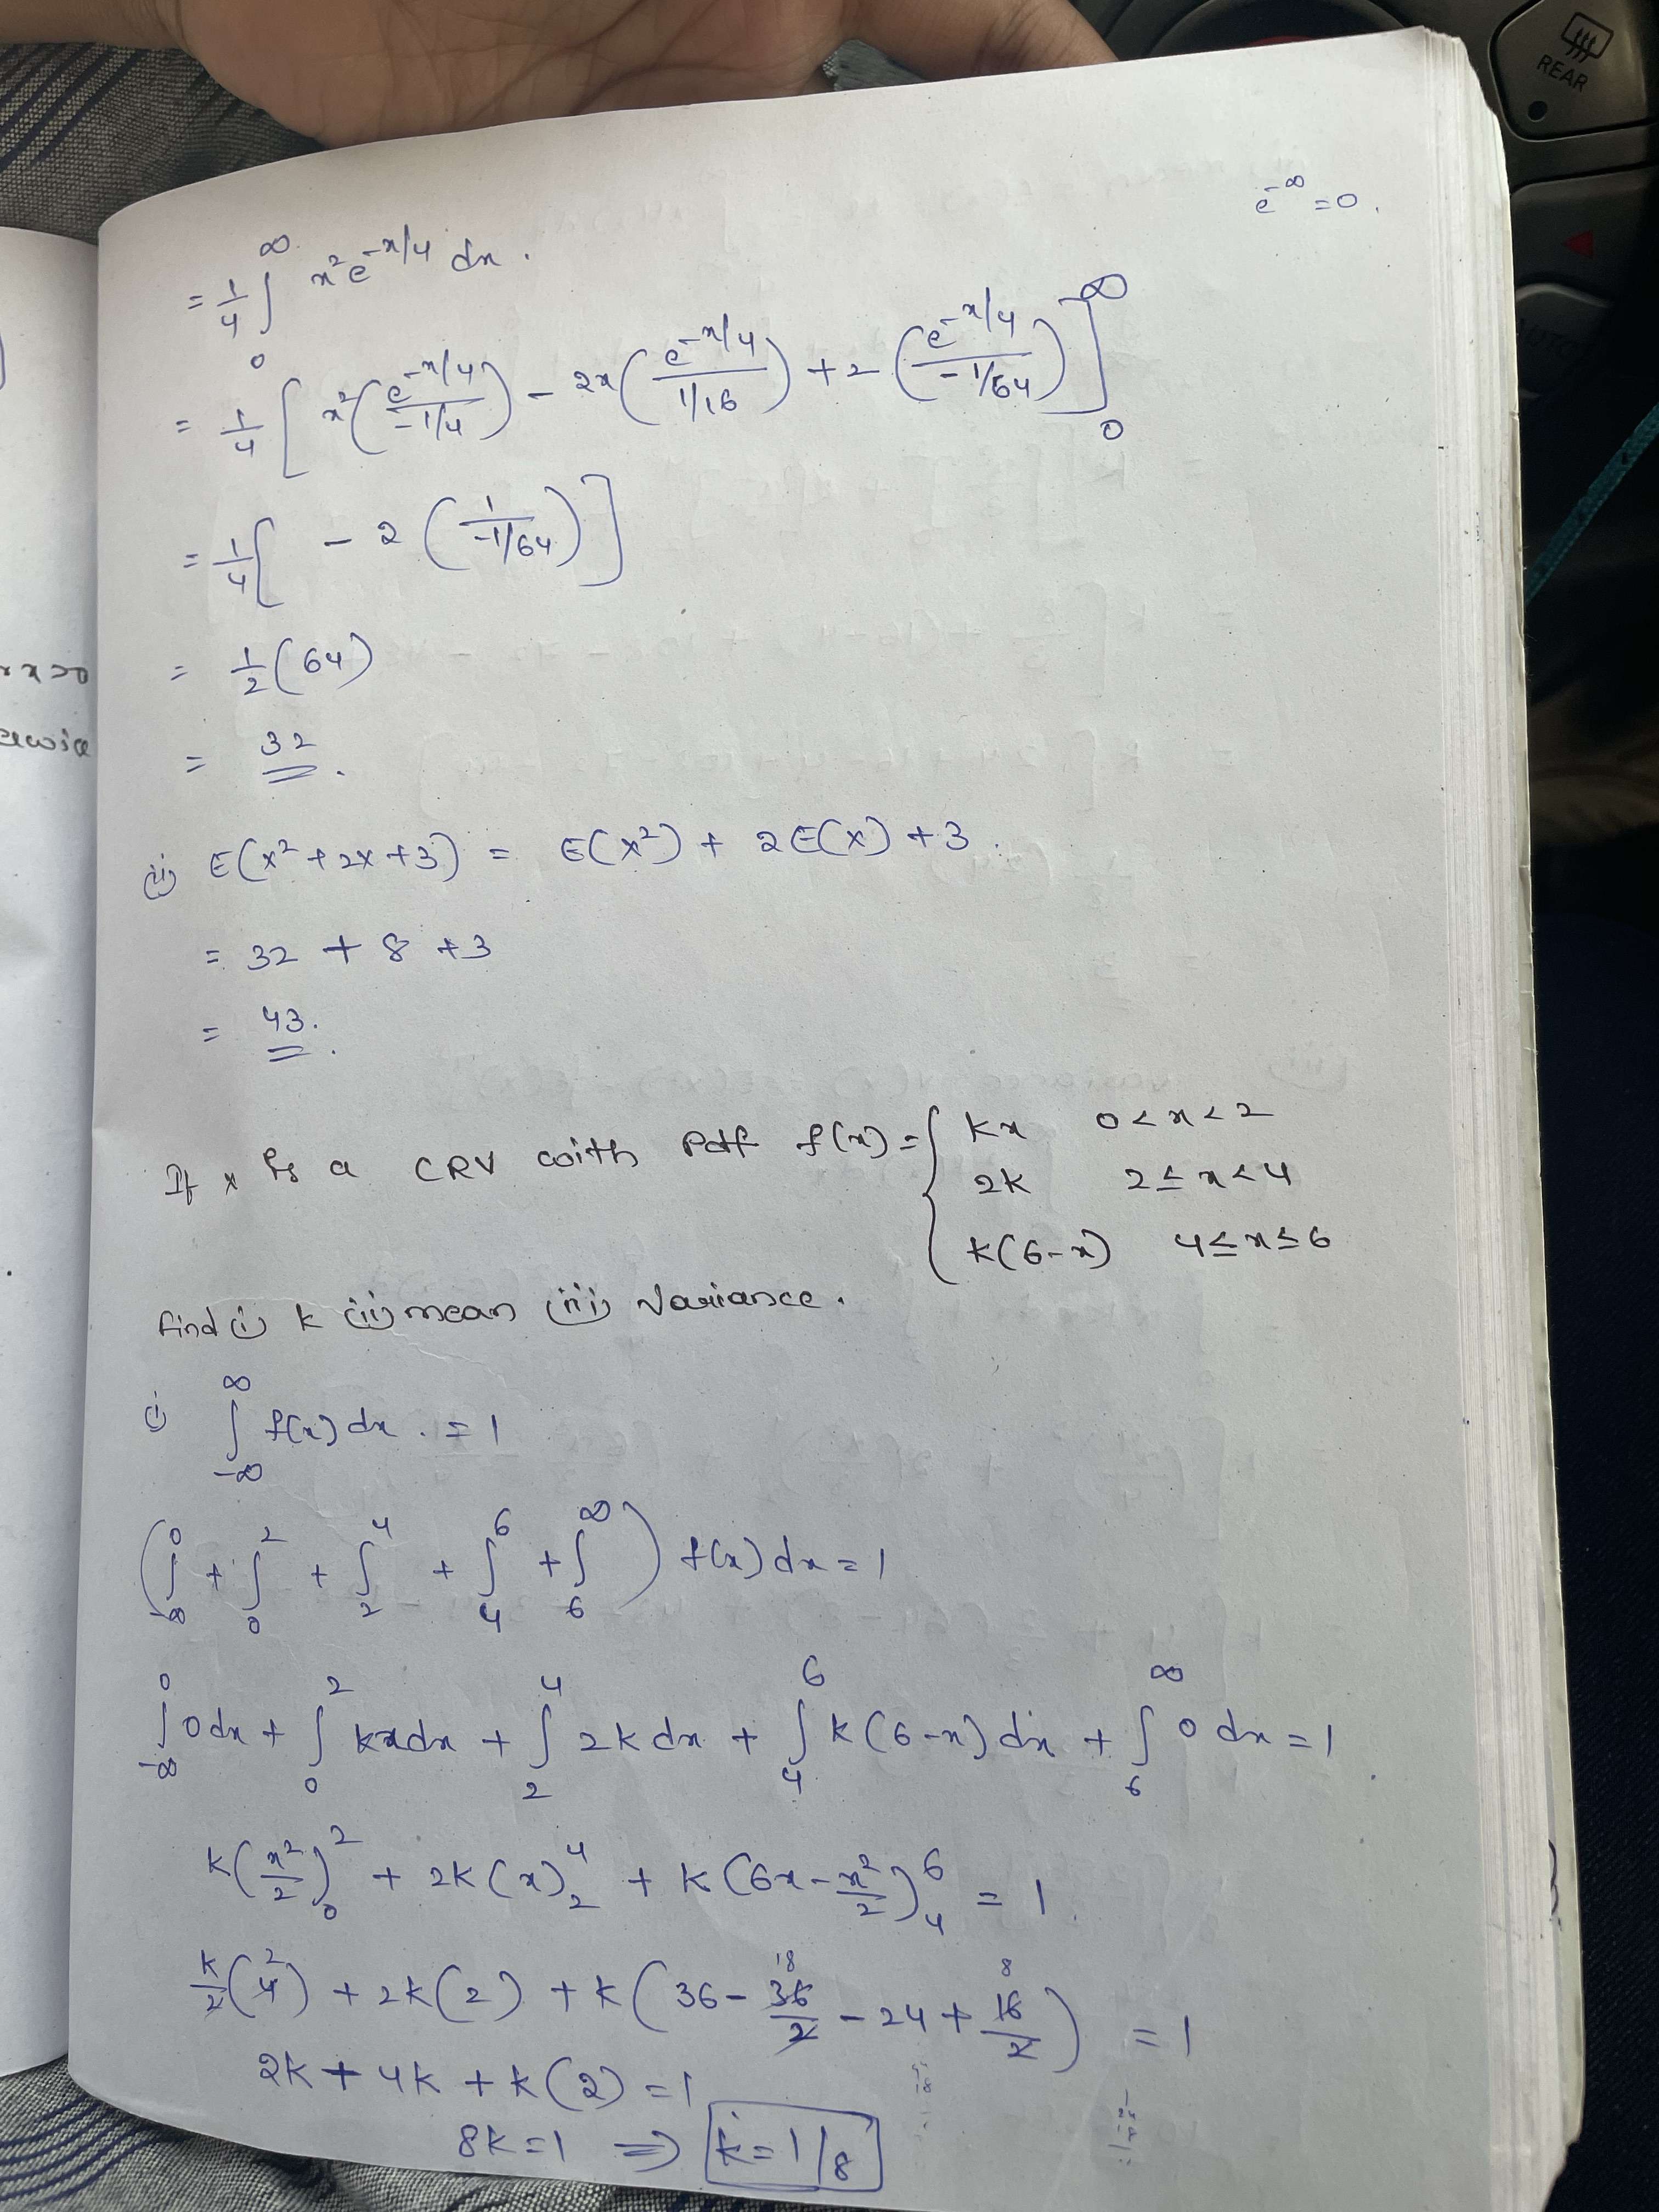 REAR
e^{-∞} = 0.
= 1/4 ∫_0^∞ x² e^{-x/4} dx.
= 1/4 [ x² (e^{-x/4} / -1/4) - 2x (e^{-x/4} / 1/16) + 2 (e^{-x/4} / -1/64) ]_0^∞
= 1/4 [ - 2 (1 / -1/64) ]
= 1/2 (64)
= 32.
(ii) E(x² + 2x + 3) = E(x²) + 2E(x) + 3.
= 32 + 8 + 3
= 43.
If x is a CRV with Pdf f(x) = { kx 0 < x < 2
2k 2 ≤ x < 4
k(6-x) 4 ≤ x ≤ 6
find (i) k (ii) mean (iii) Variance.
(i) ∫_{-∞}^∞ f(x) dx. = 1
( ∫_{-∞}^0 + ∫_0^2 + ∫_2^4 + ∫_4^6 + ∫_6^∞ ) f(x) dx = 1
∫_{-∞}^0 0 dx + ∫_0^2 kx dx + ∫_2^4 2k dx + ∫_4^6 k(6-x) dx + ∫_6^∞ 0 dx = 1
k (x²/2)_0^2 + 2k (x)_2^4 + k (6x - x²/2)_4^6 = 1
k/2 (4) 2 + 2k(2) + k (36 - 36/2 18 - 24 + 16/2 8) = 1
2k + 4k + k(2) = 1
8k = 1 ⇒ k = 1/8